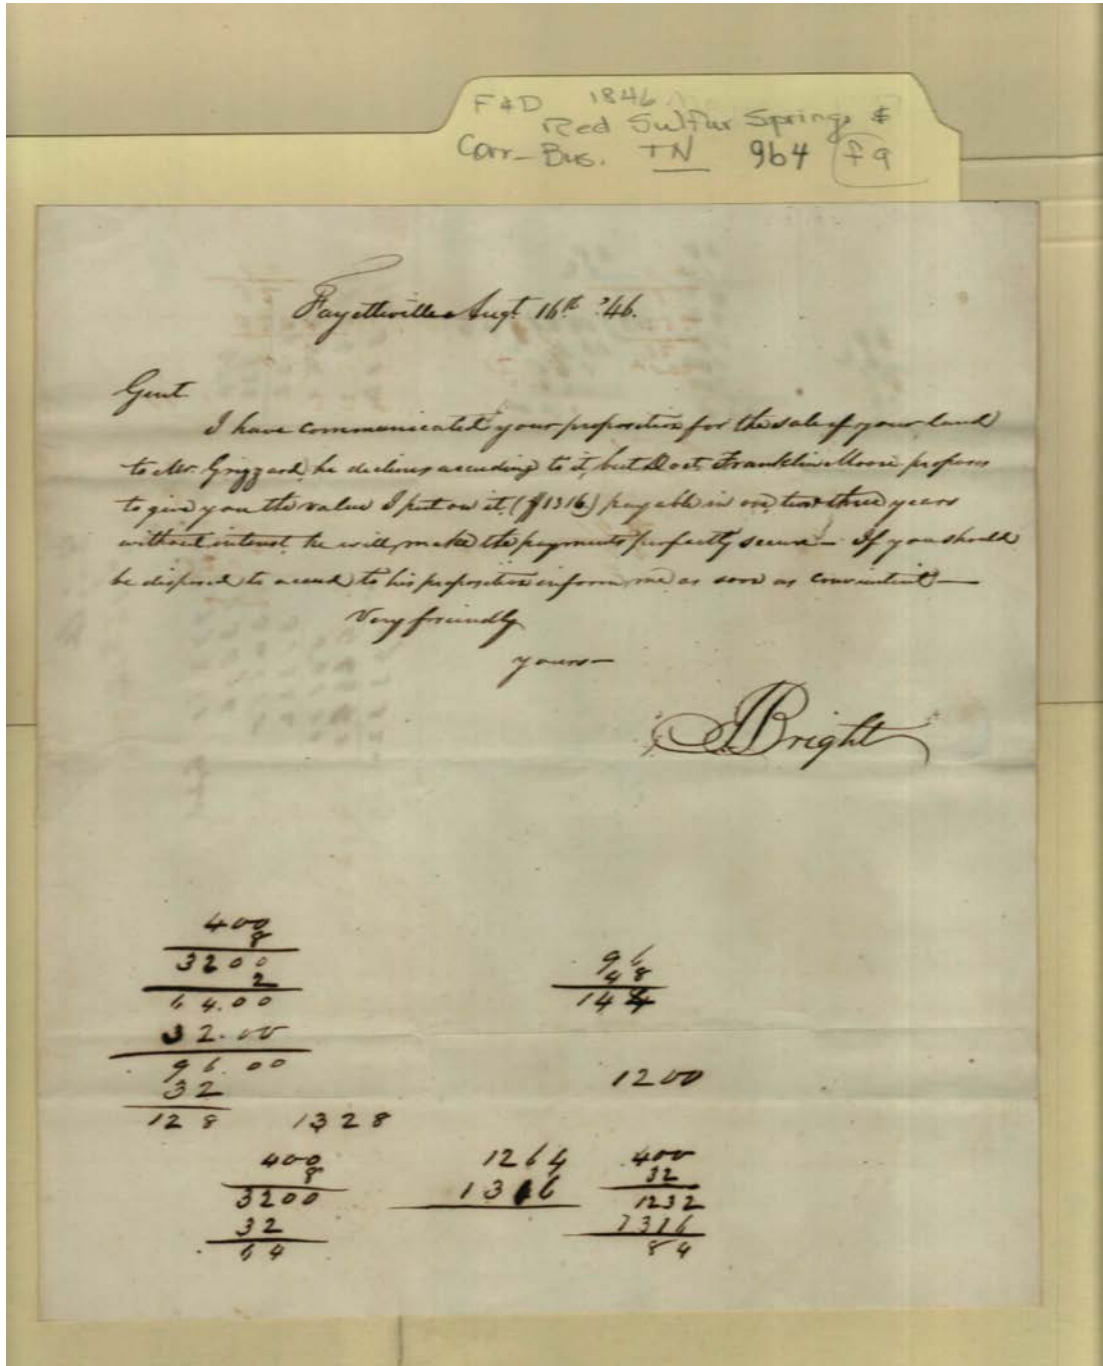 F&D 1846
Red Sulfur Springs &
Corr-Bus. TN 964 f9
Fayettville Augt 16th '46.
Gent
I have communicated your proposition for the sale of your land
to Mr. Grizzard, he declines acceeding to it, but Doct. Franklin Moore proposes
to give you the value I put on it, ($1316) payable in one, two & three years
without interest, he will make the payments perfectly secure — If you should
be disposed to acceed to his proposition inform me as soon as convenient —
Very friendly
yours —
Bright
400
8
3200
2
64.00
32.00
96.00
32
128 1328
96
48
144
1200
400
8
3200
32
64
1264
1316
400
32
1232
1316
84